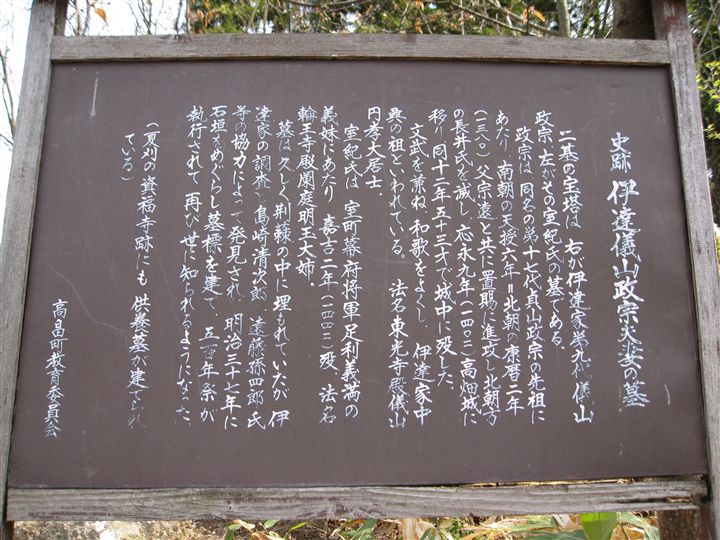 史跡 伊達儀山政宗夫妻の墓
二基の宝塔は 右が伊達家第九代 儀山
政宗 左がその室紀氏の墓である
政宗は 同名の第十七代貞山政宗の先祖に
あたり 南朝の天授六年=北朝の康暦二年
(一三八〇)父宗遠と共に置賜に進攻し北朝方
の長井氏を滅し 応永九年(一四〇二)高畑城に
移り 同十二年五十三才で城中に歿した
文武を兼ね 和歌をよくし 伊達家中
興の祖といわれている。 法名東光寺殿儀山
円孝大居士
室紀氏は 室町幕府将軍足利義満の
義妹にあたり 嘉吉二年(一四四二)歿 法名
輪王寺殿蘭庭明玉大姉.
墓は久しく荆棘の中に埋されていたが 伊
達家の調査と島崎清次郎 遠藤孫四郎氏
等の協力によって発見され 明治三十七年に
石垣をめぐらし墓標を建て 五百年祭が
執行されて 再び世に知られるようになった.
(夏刈の資福寺跡にも 供養墓が建てられ
ている)
高畠町教育委員会